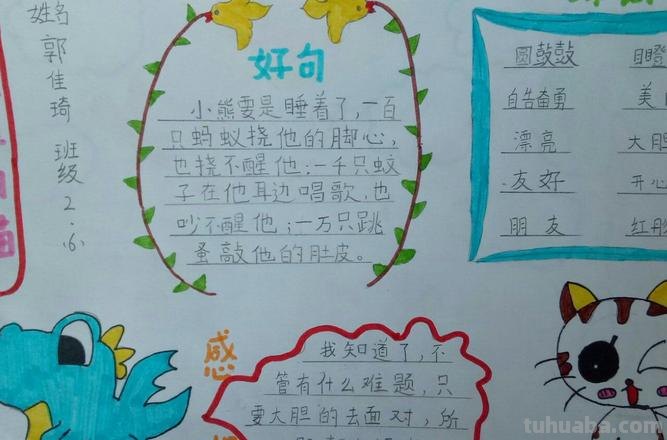 姓名
郭佳琦
班级
2.6
好句
小熊要是睡着了,一百
只蚂蚁挠他的脚心,
也挠不醒他;一千只蚊
子在他耳边唱歌,也
吵不醒他;一万只跳
蚤敲他的肚皮。
圆鼓鼓
自告奋勇
漂亮
友好
朋友
美
大胆
开心
感
我知道了,不
管有什么难题,只
要大胆的去面对,所
tuhuaba.com